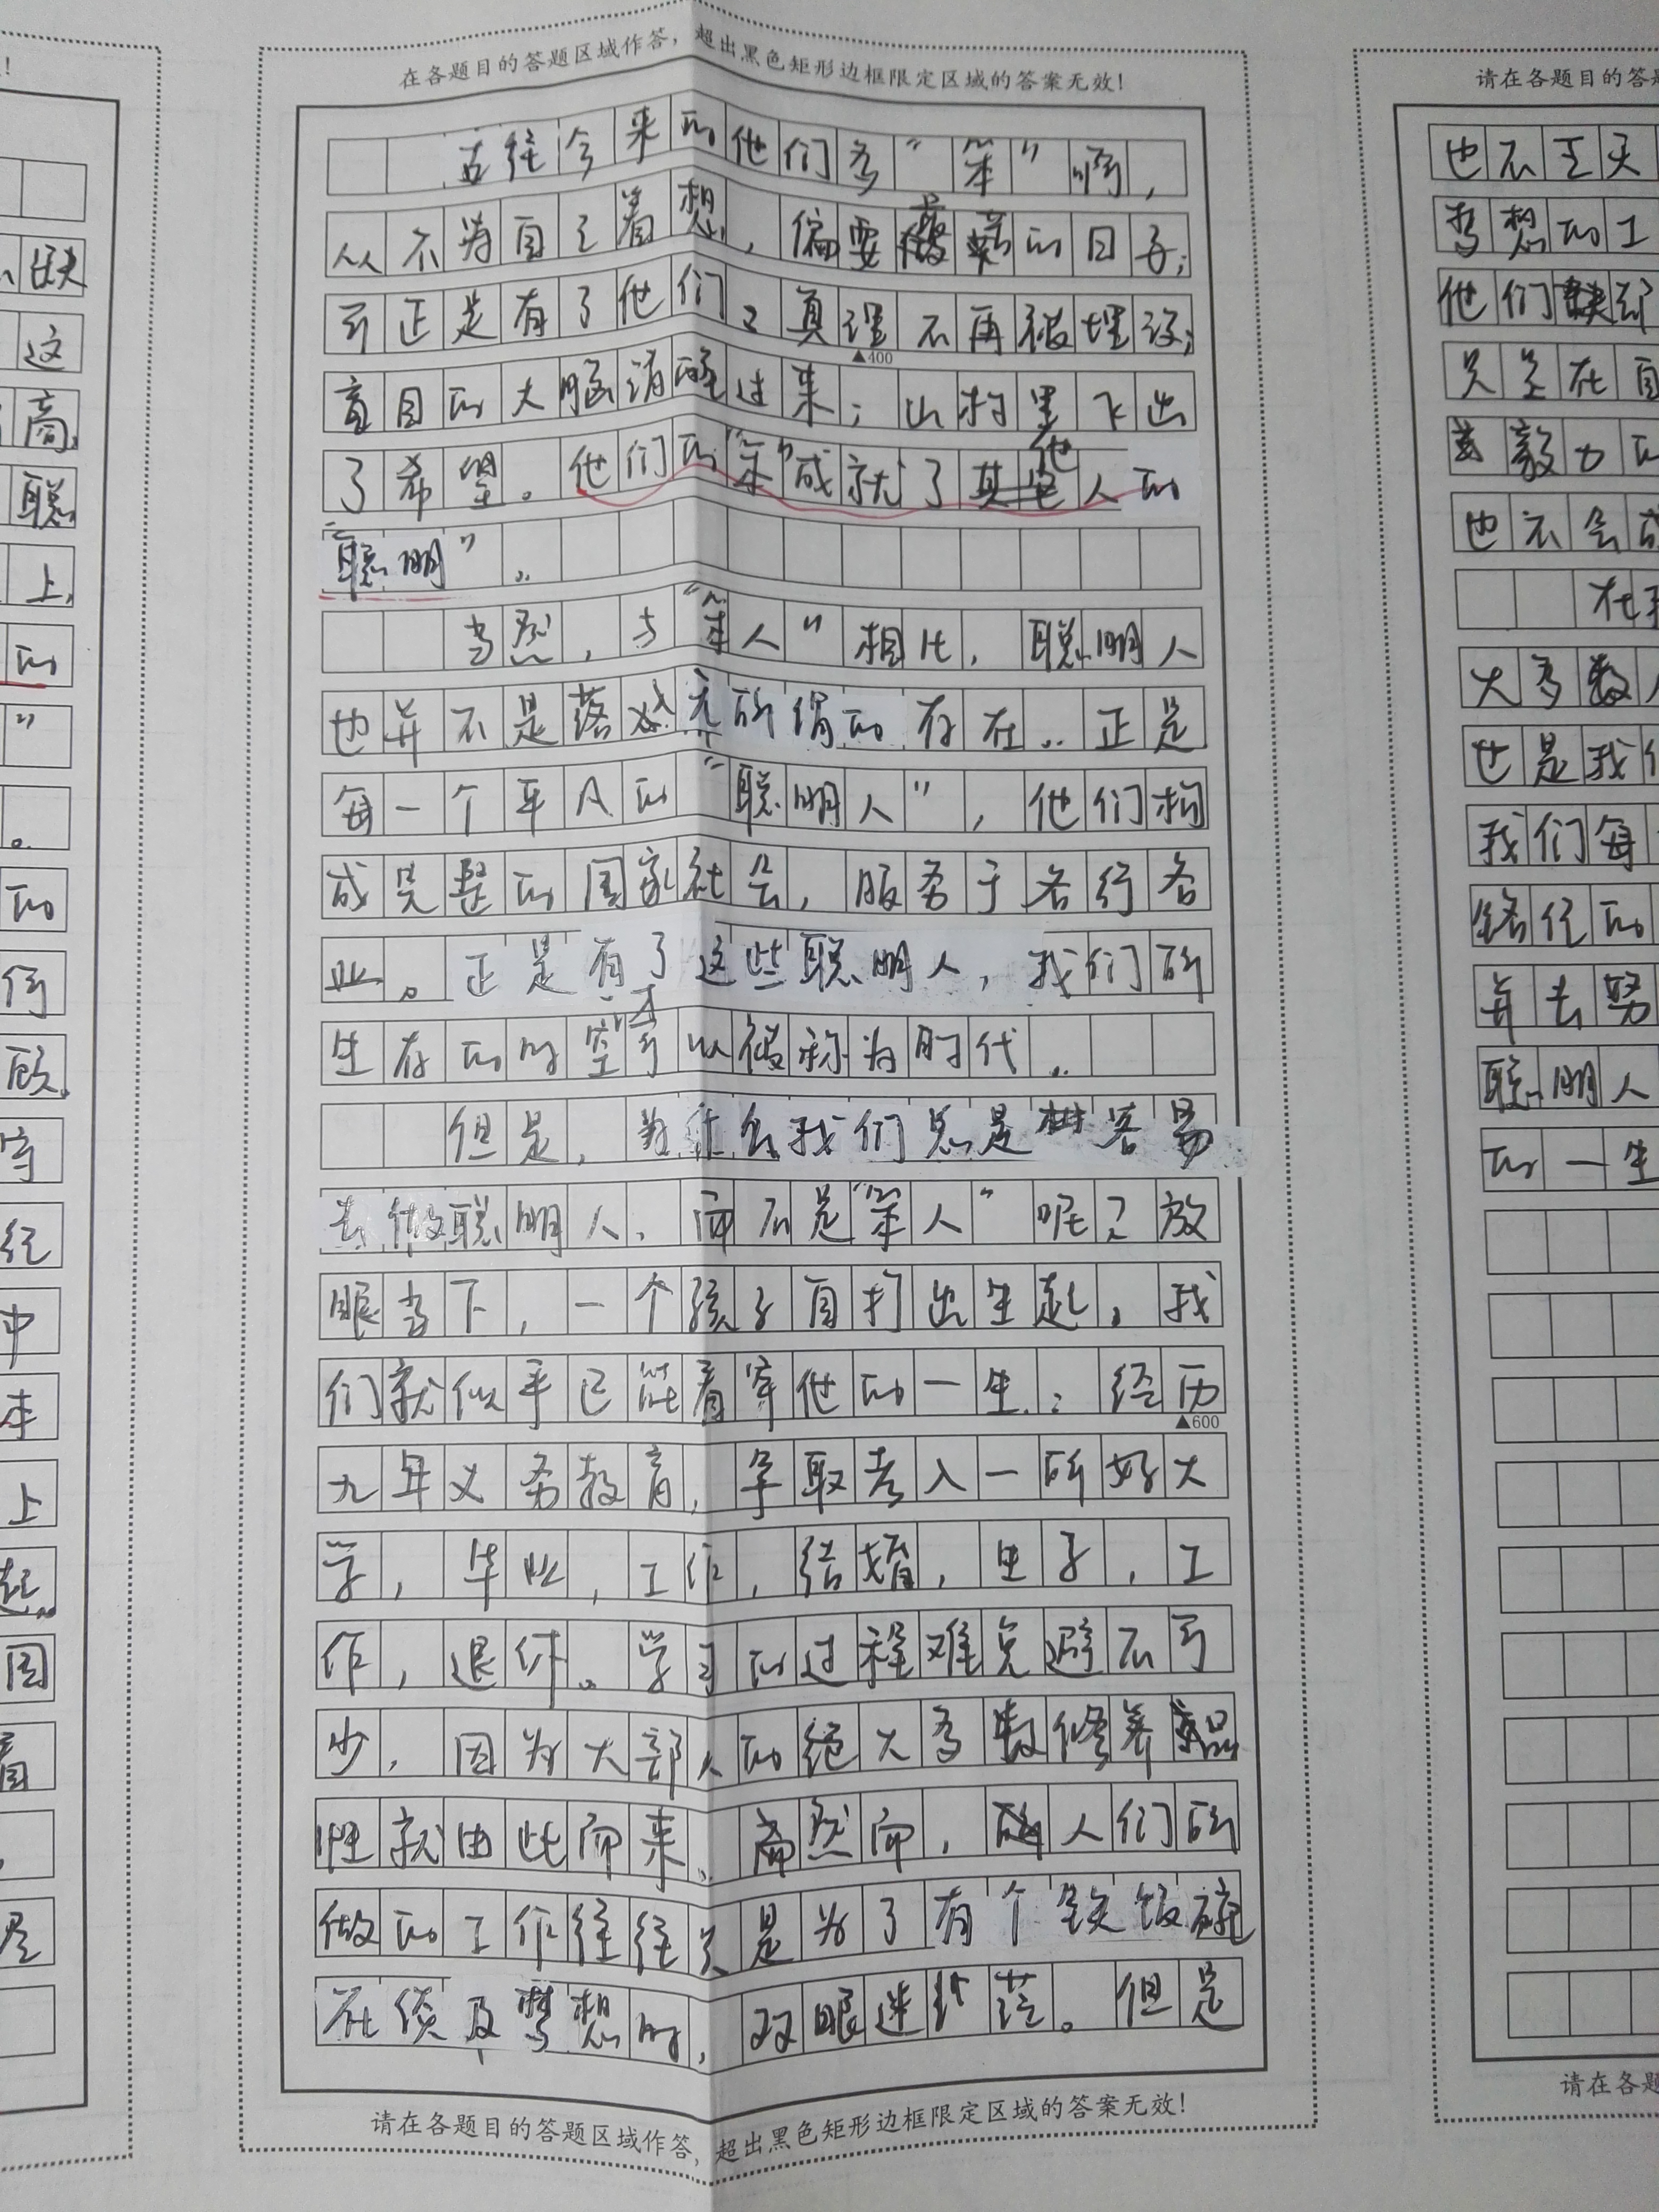 在各题目的答题区域作答，超出黑色矩形边框限定区域的答案无效！
古往今来的他们多“笨”啊，
从不为自己着想，偏要落的日子；
可正是有了他们，真理不再被埋没；
▲400
盲目的大脑清醒过来；山村里飞出
了希望。他们的“笨”成就了其他人的
“聪明”。
当然，与“笨人”相比，聪明人
也并不是落败无所谓的存在。正是
每一个平凡的“聪明人”，他们构
成完整的国家社会，服务于各行各
业。正是有了这些聪明人，我们所
生存的时空才可以被称为时代。
但是，为什么我们总是容易
去做聪明人，而不是“笨人”呢？放
眼当下，一个孩子自打出生起，我
们就似乎已能看穿他的一生：经历
▲600
九年义务教育，争取考入一所好大
学，毕业，工作，结婚，生子，工
作，退休。学习的过程难免避不可
少，因为大部人的绝大多数修养品
性就由此而来。然而，人们所
做的工作往往只是为了有个铁饭碗
在谈及梦想时，双眼迷茫。但是
请在各题目的答题区域作答，超出黑色矩形边框限定区域的答案无效！
！
缺
这
高，
聪
上，
的
”
。
的
何
顾，
穿
经
中
本
上
起。
国
看
请在各题目的答题
也不
梦想的工
他们却
只是在自
毅力的
也不会成
在我
大多数人
也是我们
我们每
给任的
并去努
聪明人
的一生
请在各题